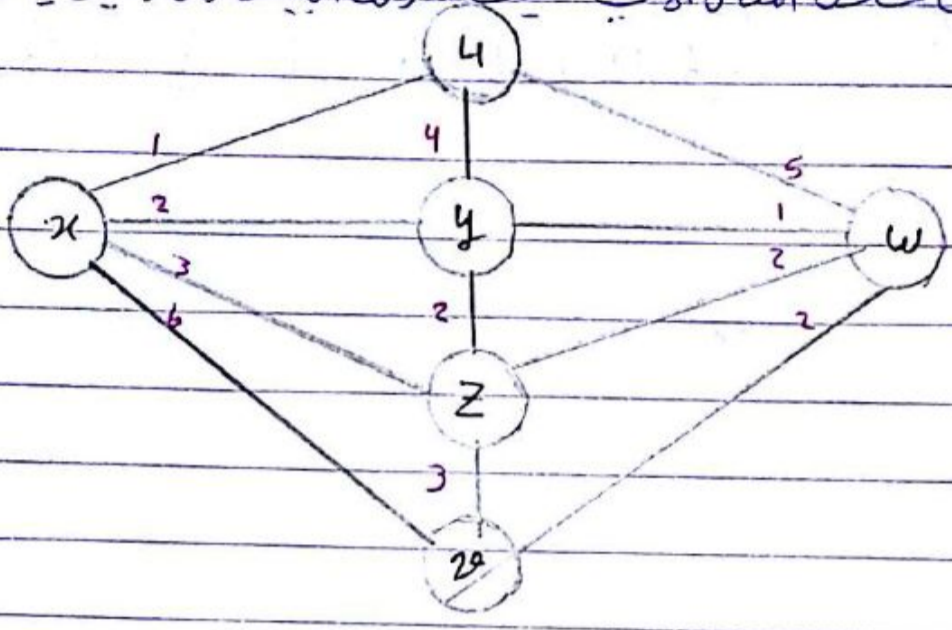 4
1
4
5
x
2
y
1
w
3
2
6
2
2
z
3
v